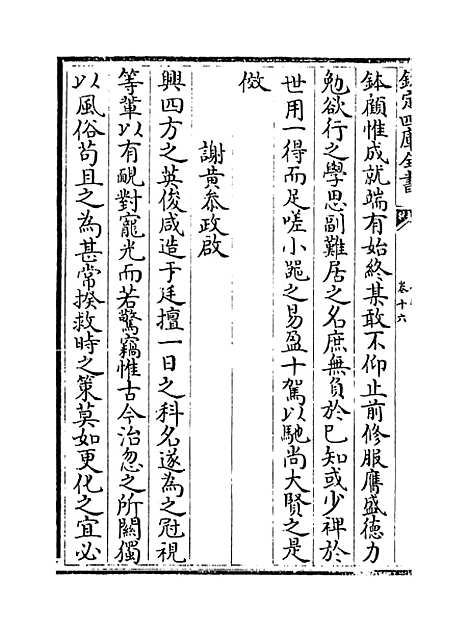 欽定四庫全書
卷十六
鉢顧惟成就端有始終某敢不仰止前修服膺盛德力
勉欲行之學思副難居之名庶無負於已知或少裨於
世用一得而足嗟小器之易盈十駕以馳尚大賢之是
儆
謝黄叅政啟
興四方之英俊咸造于廷擅一日之科名遂為之冠視
等輩以有靦對寵光而若驚竊惟古今治忽之所關獨
以風俗苟且之為甚常揆救時之策莫如更化之宜必